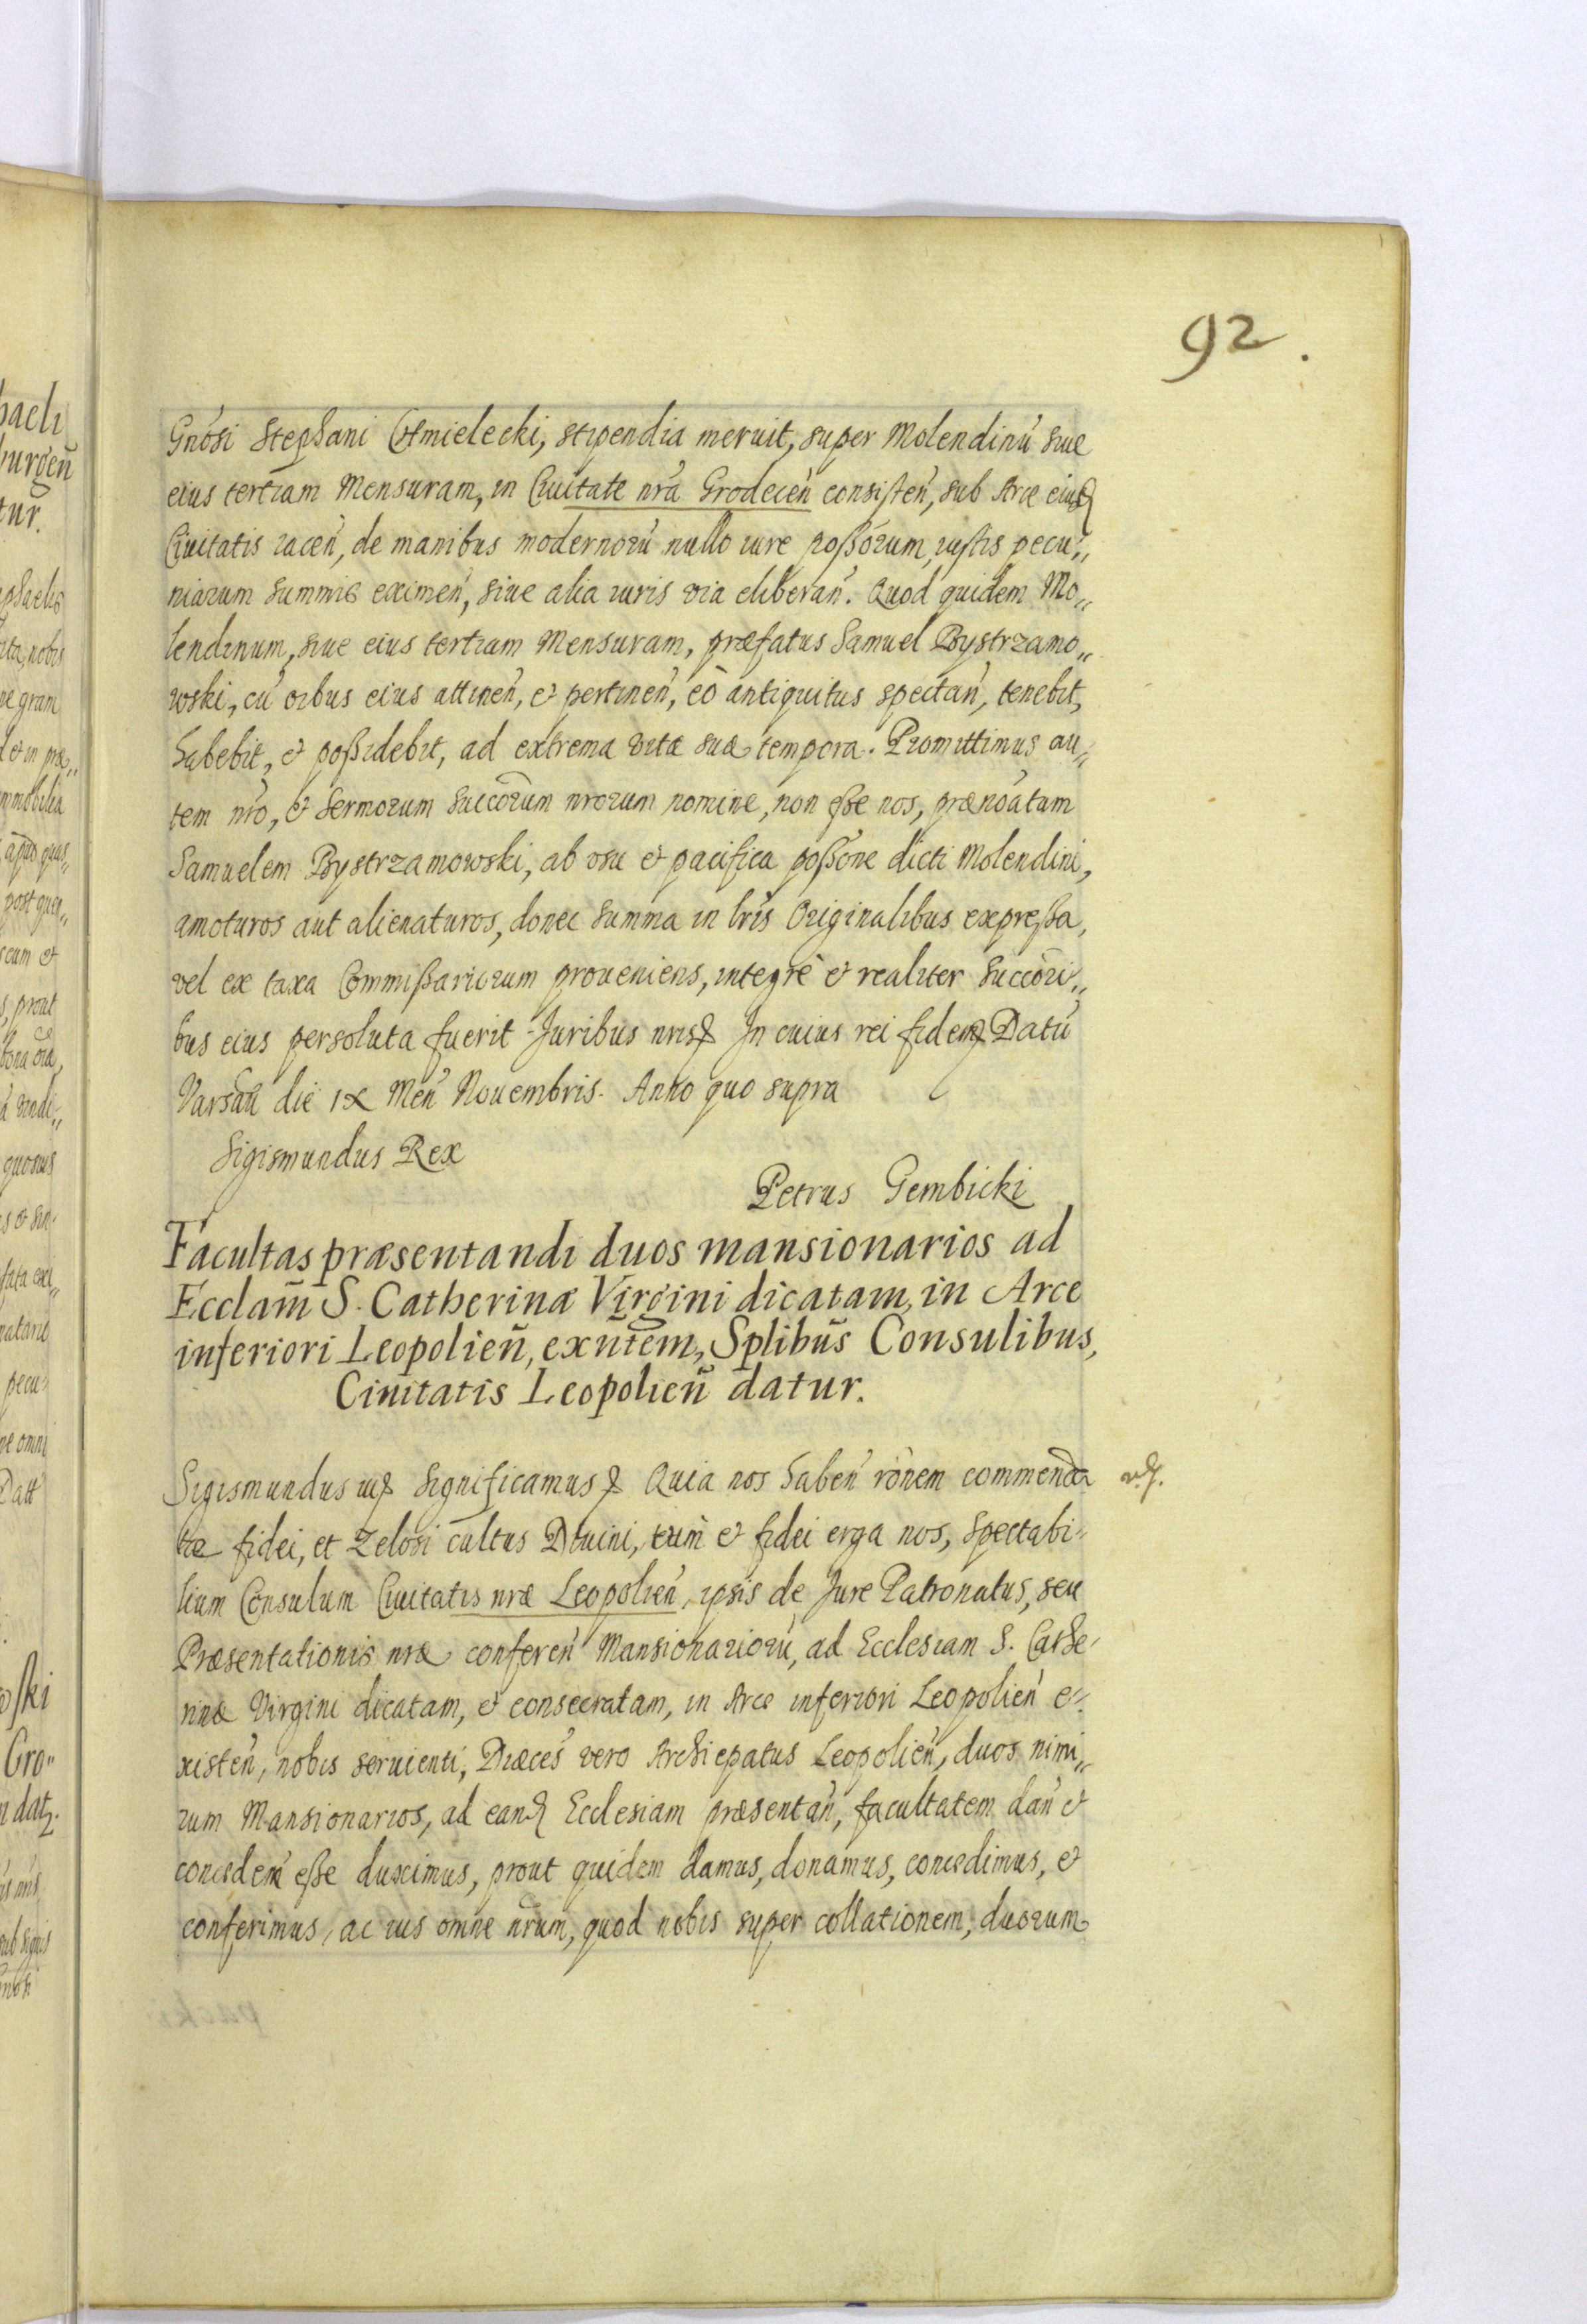 92.
Gnósi Stephani Chmielecki, stipendia meruit, super Molendinú siue
eius tertiam Mensuram, in Ciuitate nrá Grodeceń consisteń, sub Arce eiusd
Ciuitatis iaceń, de manibus modernorú nullo iure poßórum, iustis pecu„
niarum summis eximeń, siue alia iuris via eliberań. Quod quidem Mo„
lendinum, siue eius tertiam Mensuram, præfatus Samuel Bystrzamo„
wski, cú oibus eius attineń, et pertineń, eó antiquitus spectań, tenebit,
habebit, et poßidebit, ad extrema vitæ suæ tempora. Promittimus au„
tem nró, et Sermorum Succórum nrorum nomine, non eße nos, prænoátum
Samuelem Bystrzamowski, ab vsu et pacifica poßóne dicti Molendini,
amoturos aut alienaturos, donec summa in lrís Originalibus expreßa,
vel ex taxa Commißariorum proueniens, integrè et realiter Succóri„
bus eius persoluta fuerit. Juribus nris In cuius rei fidem Datú
Varsáu die IX Meń Nouembris. Anno quo supra
Sigismundus Rex
Petrus Gembicki
Facultas præsentandi duos mansionarios ad
Ecclam̃ S. Catherinæ Virgini dicatam, in Arce
inferiori Leopolień, exñtem, Splibus̃ Consulibus,
Ciuitatis Leopolień datur.
Sigismundus iii Significamus Quia nos habeń rónem commenda
tæ fidei, et zelosi cultus Diuini, tum et fidei erga nos, Spectabi-
lium Consulum Ciuitatis nræ Leopolień, ipsis de Jure Patronatus, seu
Præsentationis nræ confereń Mansionariorú, ad Ecclesiam S. Cathe-
rinæ Virgini dicatam, et consecratam, in Arce inferiori Leopolień e-
xisteń, nobis seruienti, Diæces̃ vero Archiepatus Leopolień, duos nimi„
rum Mansionarios, ad eand Ecclesiam præsentań, facultatem dań et
concedeń eße duximus, prout quidem damus, donamus, concedimus, et
conferimus, ac ius omne nrũm, quod nobis super collationem, duorum